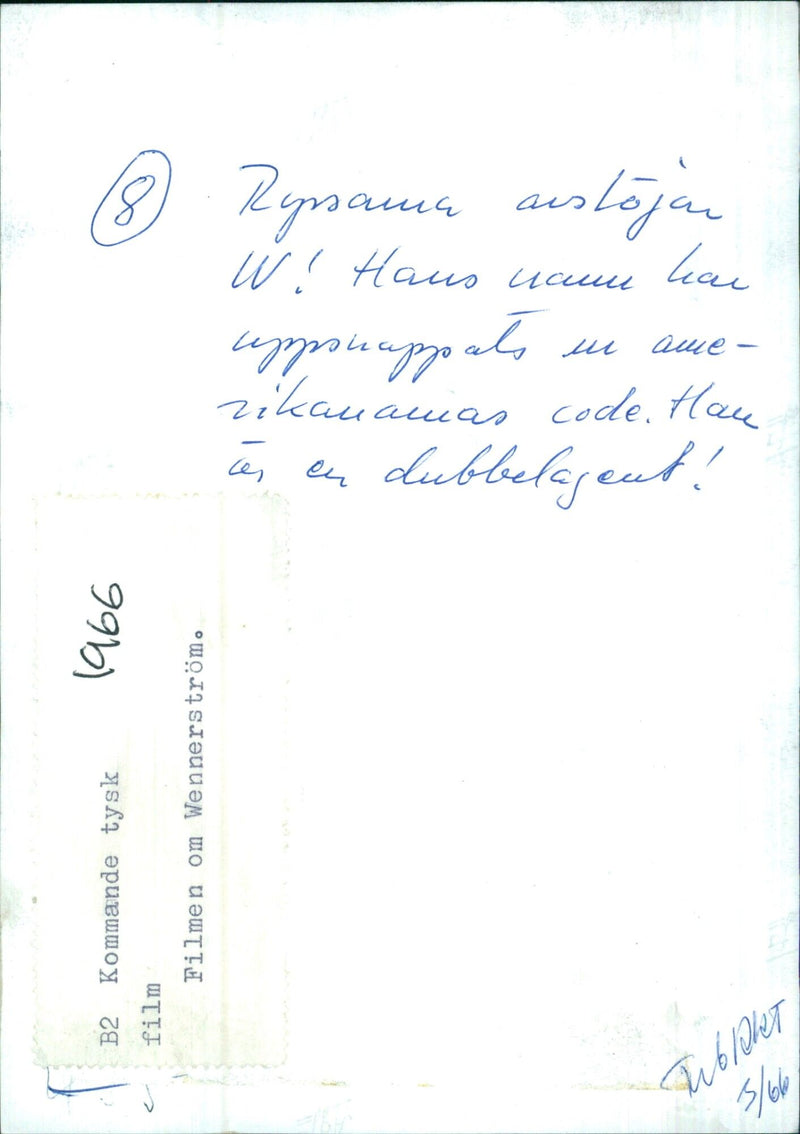 8
Ryssarna avslöjar
W! Hans namn har
uppsnappats ur ame-
rikanarnas code. Han
är en dubbelagent!
1966
B2 Kommande tysk
film
Filmen om Wennerström.
3/66